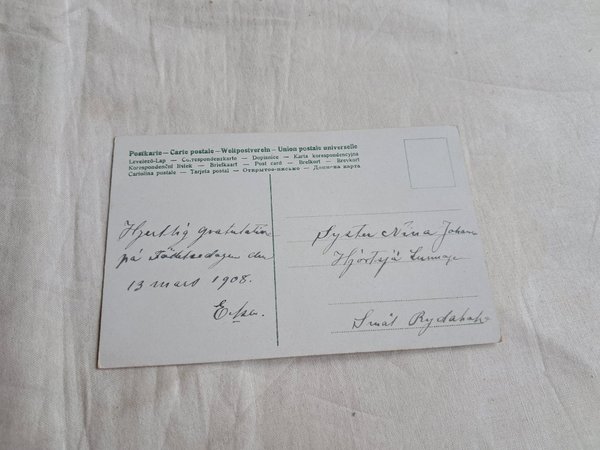 Postkarte — Carte postale — Weltpostverein — Union postale universelle
Levelező-Lap — Correspondenzkarte — Dopisnice — Karta korespondencyjna
Korespondenční listek — Briefkaart — Post card — Brefkort — Brevkort
Cartolina postale — Tarjeta postal — Открытое письмо — Дописна карта
Hjertlig gratulation
på Födelsedagen den
13 mars 1908.
Syster Nina Johan
Hjortsjö
Smål Rydaholm